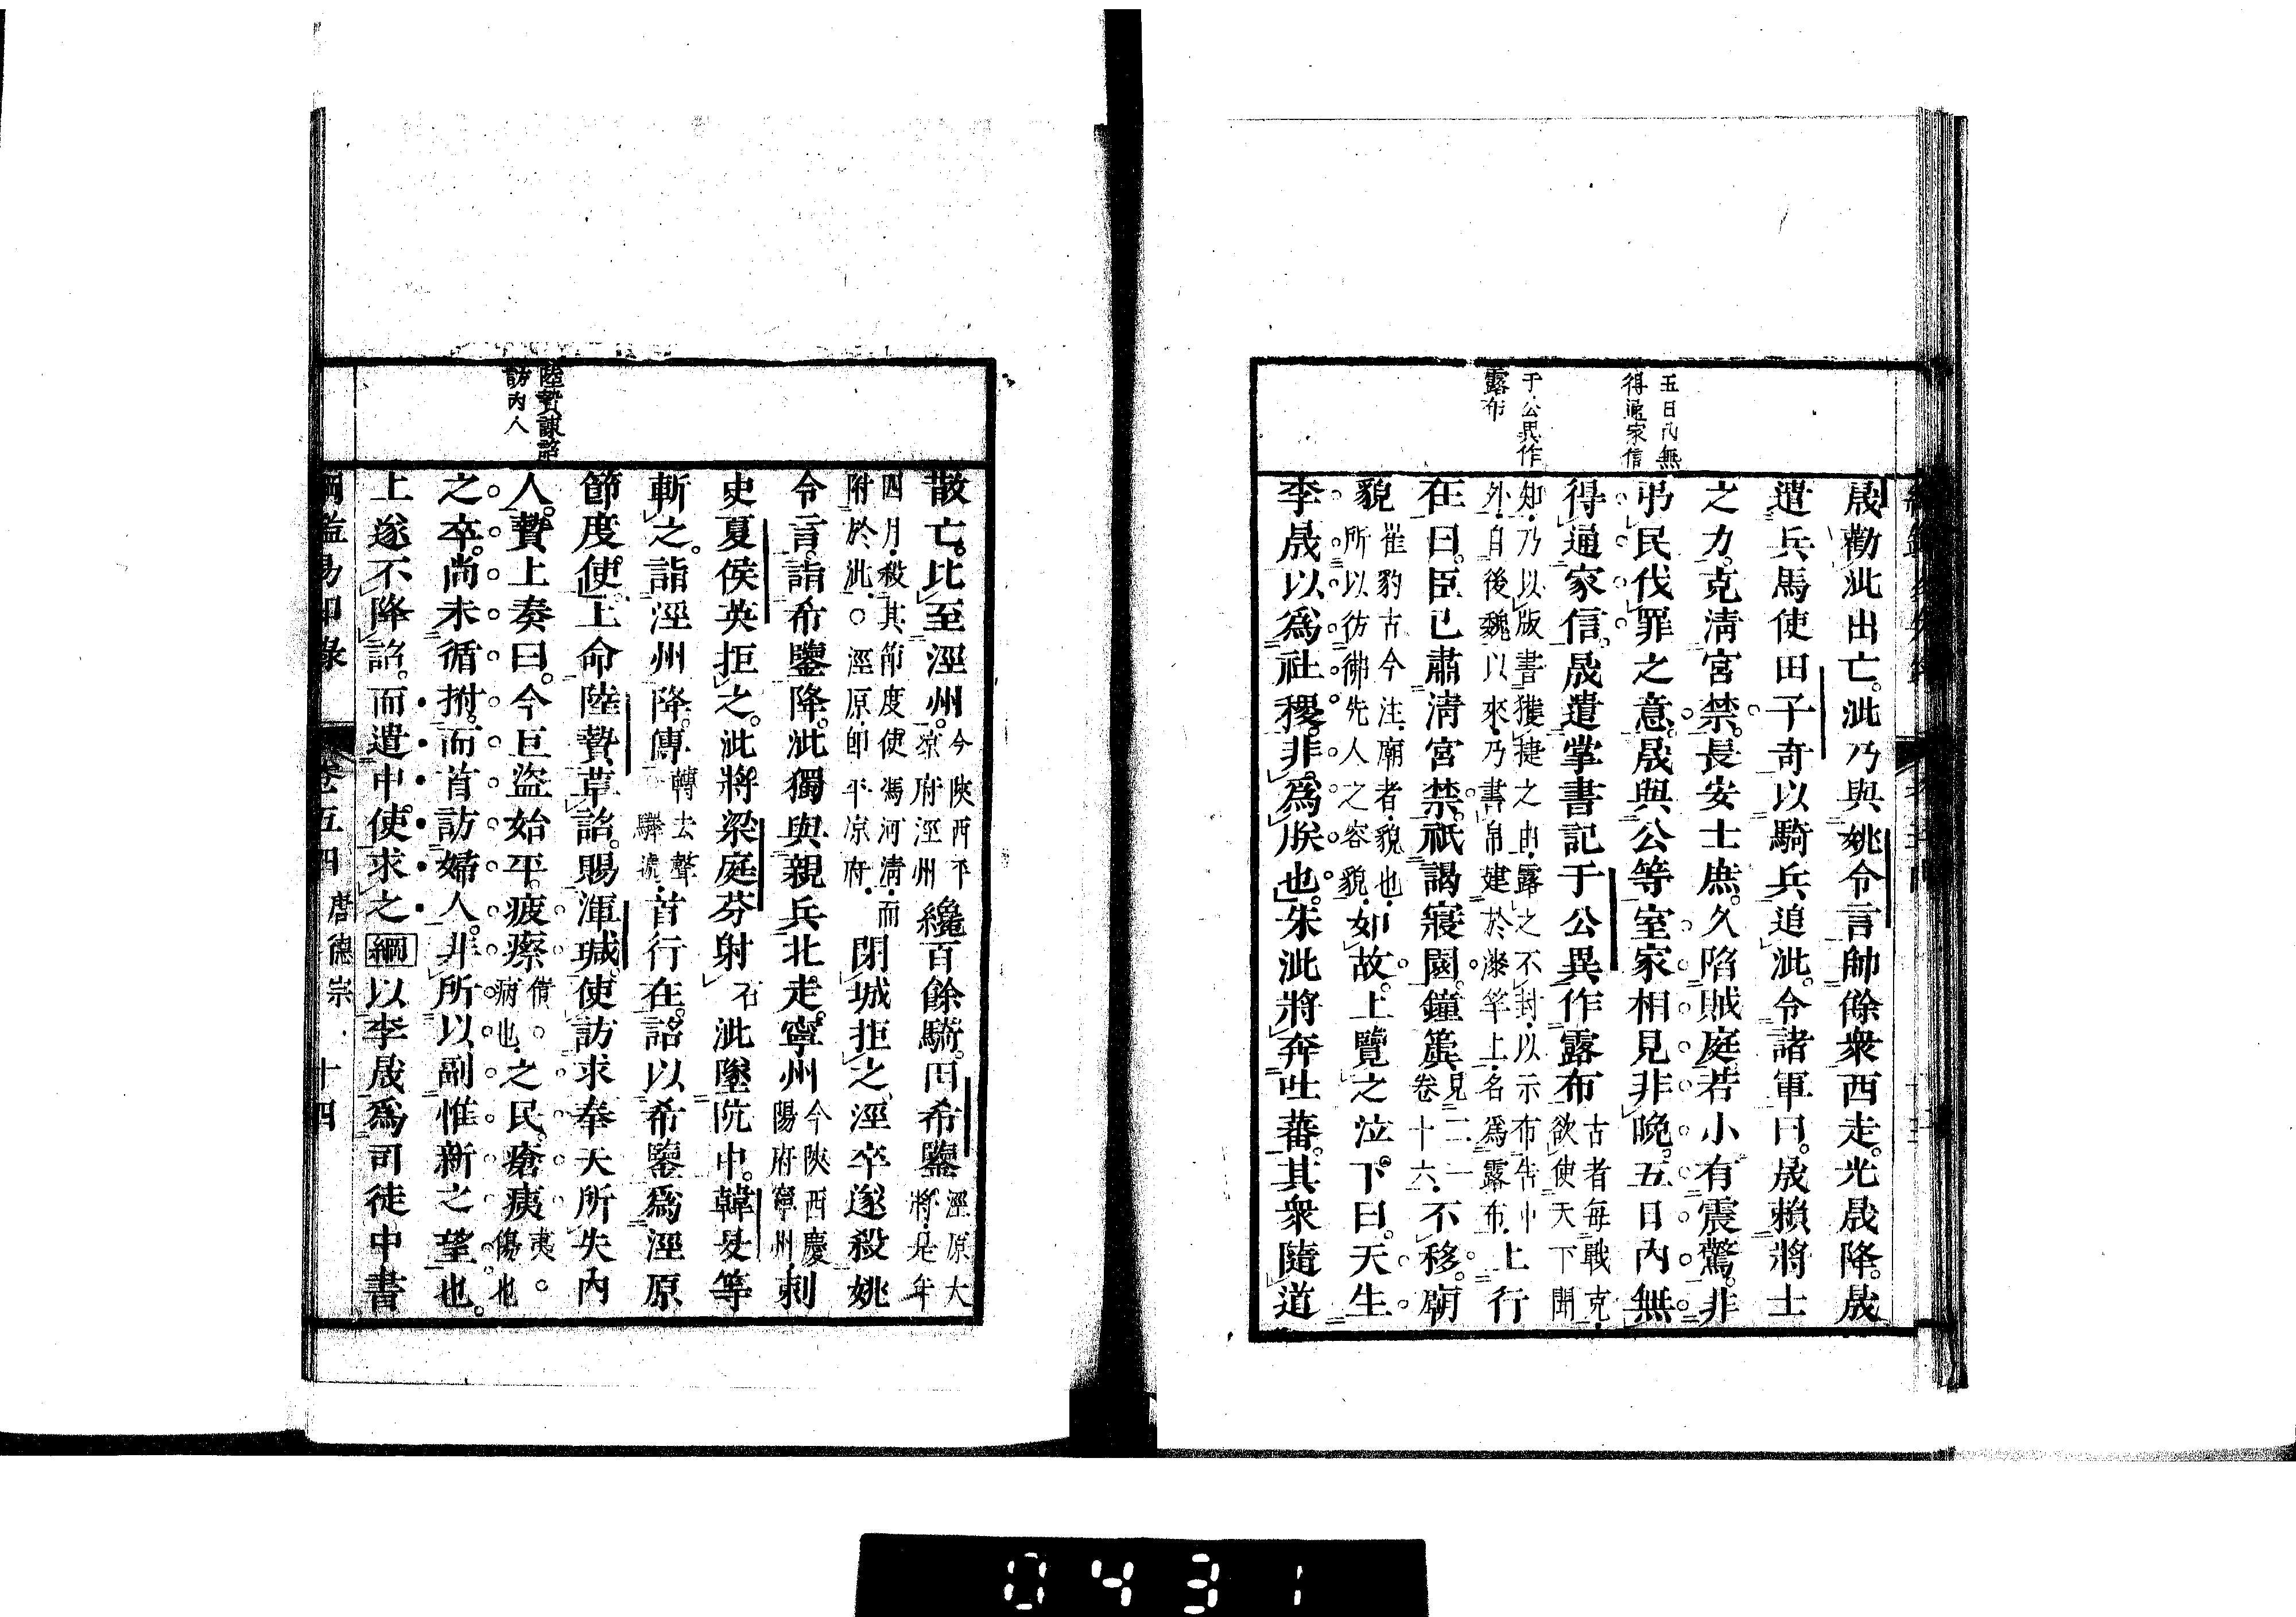 五日内無
得通家信
于公異作
露布
晟勸泚出亡。泚乃與姚令言帥餘衆西走。光晟降。晟
遣兵馬使田子奇以騎兵追泚。令諸軍曰。晟賴將士
之力。克清宮禁。長安士庶。久陷賊庭。若小有震驚。非
弔民伐罪之意。晟與公等室家相見非晩。五日内無
得通家信。晟遣掌書記于公異作露布古者毎戰克、欲使天下聞
知、乃以版書獲捷之由、露之不封、以示布告中外、自後魏以來、乃書帛建於漆竿上、名爲露布、上行
在曰。臣已肅清宮禁。祇謁寢園。鐘簴見二一卷十六、不移。廟
貌崔豹古今注、廟者、貌也、所以彷彿先人之容貌、如故。上覽之泣下曰。天生
李晟以爲社稷。非爲朕也。朱泚將奔吐蕃。其衆隨道
陸贄諌詔
訪内人
散亡。比至涇州。今陝西平凉府涇州纔百餘騎。田希鑒涇原大將、是年
四月、殺其節度使馮河清、而附於泚、○涇原、即平凉府、閉城拒之、涇卒遂殺姚
令言。詣希鑒降。泚獨與親兵北走。寧州今陝西慶陽府寧州、刺
史夏侯英拒之。泚將梁庭芬射石泚墜阬中。韓旻等
斬之。詣涇州降。傳轉去聲驛遞、首行在。詔以希鑒爲涇原
節度使。上命陸贄草詔。賜渾瑊。使訪求奉天所失内
人。贄上奏曰。今巨盜始平。疲瘵債○病也、之民。瘡痍夷○傷也
之卒。尚未循拊。而首訪婦人。非所以副惟新之望也。
上遂不降詔。而遣中使求之綱以李晟爲司徒中書
綱鑑易知錄 卷五四 唐德宗 十四
0431